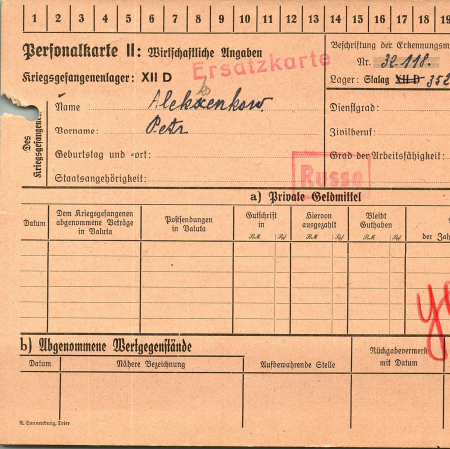 1 2 3 4 5 6 7 8 9 10 11 12 13 14 15 16 17 18 19
Personalkarte II: Wirtschaftliche Angaben
Ersatzkarte
Beschriftung der Erkennungsm
Nr. 32.118.
Kriegsgefangenenlager: XII D
Lager: Stalag XII D 352
Des Kriegsgefangenen
Name
Dienstgrad:
Vorname: Petr
Zivilberuf:
Geburtstag und -ort:
Grad der Arbeitsfähigkeit:
Staatsangehörigkeit:
Russe
a) Private Geldmittel
Datum
Dem Kriegsgefangenen abgenommene Beträge in Valuta
Postsendungen in Valuta
Gutschrift in
Hiervon ausgezahlt
Bleibt Guthaben
der Jah
RM Rpf RM Rpf RM Rpf
b) Abgenommene Wertgegenstände
Datum
Nähere Bezeichnung
Aufbewahrende Stelle
Rückgabevermerk mit Datum
R. Sonnenburg, Trier